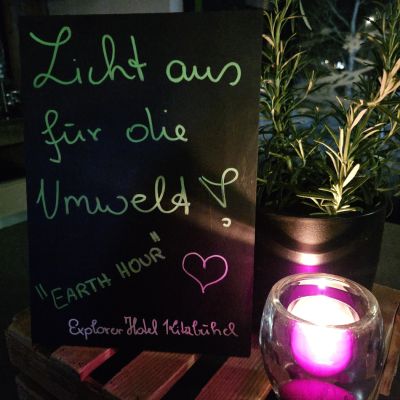 Licht aus
für die
Umwelt!
"EARTH HOUR"
Explorer Hotel Kitzbühel